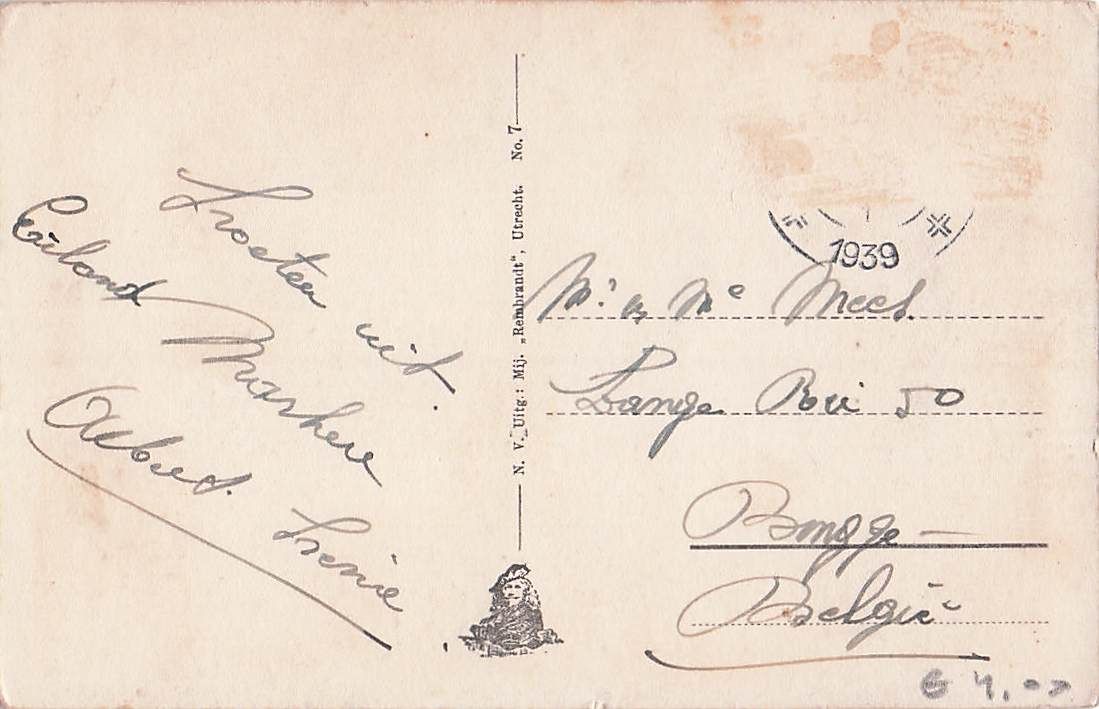 Groeten uit
Eiland Marken
Albert. Irenie
N. V. Uitg.: Mij. „Rembrandt“, Utrecht. No. 7
1939
Mr en Me Mees.
Lange Rei 50
Brugge —
België